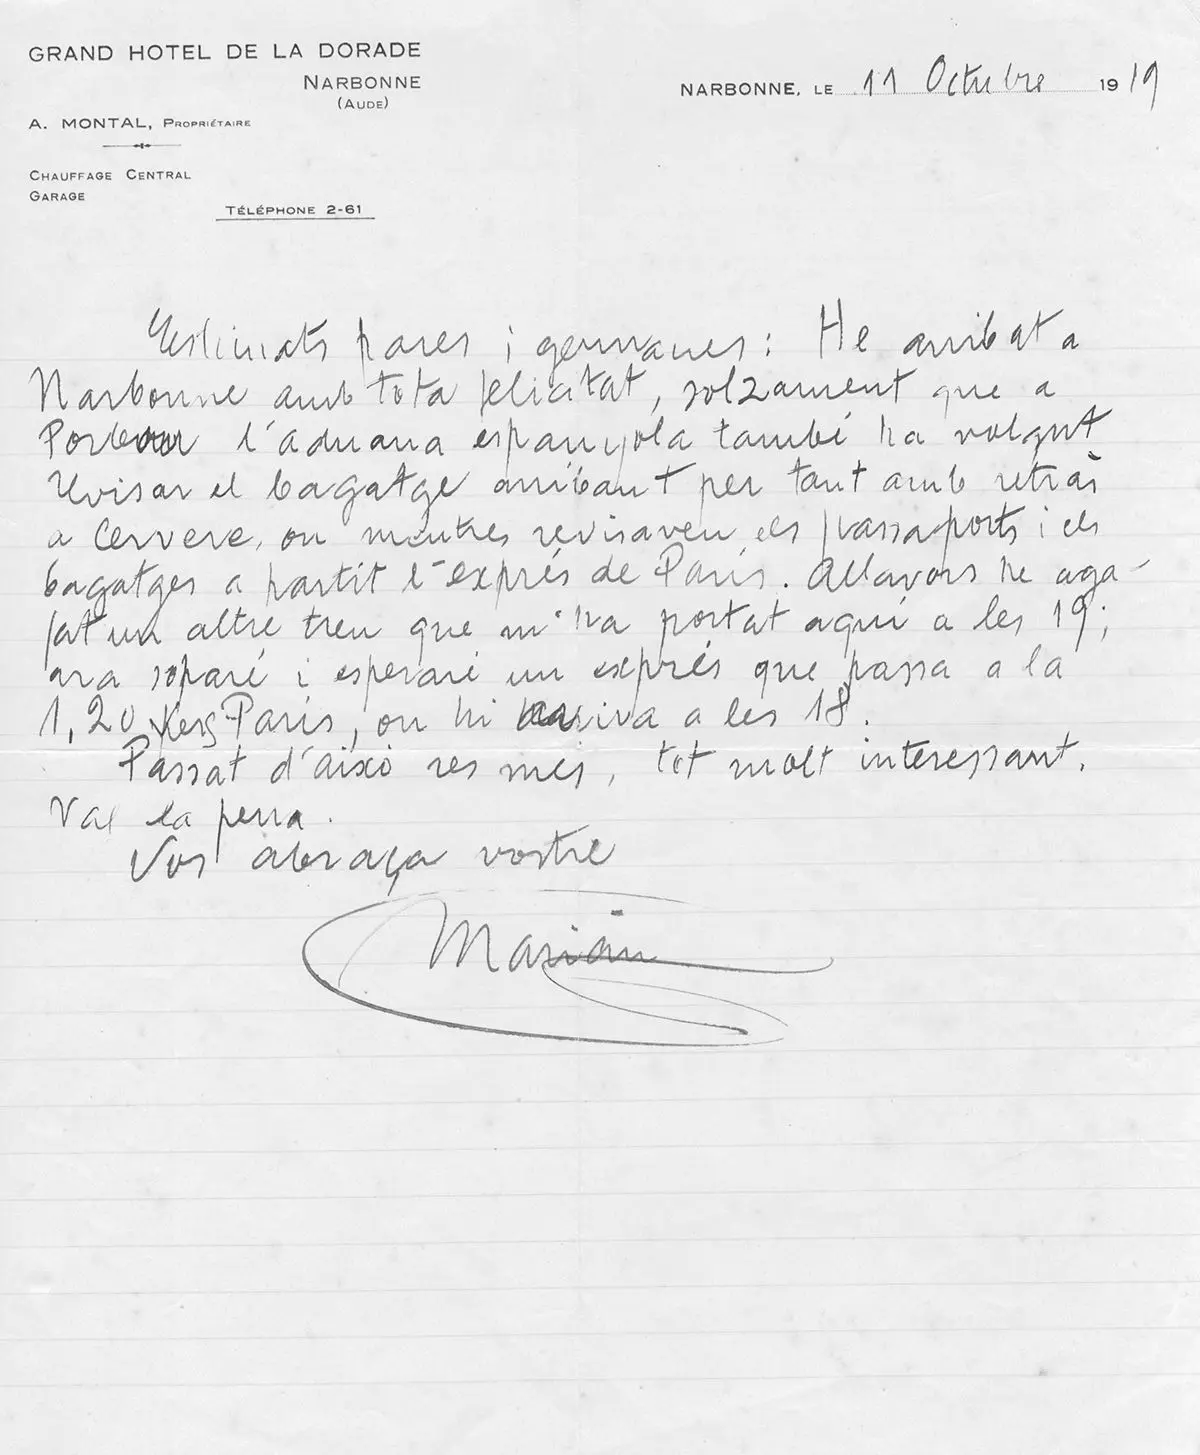 GRAND HOTEL DE LA DORADE
NARBONNE
(AUDE)
A. MONTAL, PROPRIÉTAIRE
CHAUFFAGE CENTRAL
GARAGE
TÉLÉPHONE 2-61
NARBONNE, LE 11 Octubre 1919
Estimats pares i germanes: He arribat a
Narbonne amb tota felicitat, solzament que a
l'aduana espanyola també ha volgut
revisar el bagatge arribant per tant amb retràs
a Cervere, on mentres revisaven els passaports i els
bagatges a partit l'exprés de Paris. Allavors he aga-
fat un altre tren que m'ha portat aquí a les 19;
ara soparé i esperaré un exprés que passa a la
1,20 vers Paris, on hi arriva a les 18.
Passat d'aixó res mes, tot molt interessant.
Val la pena.
Vos abraça vostre
Marián